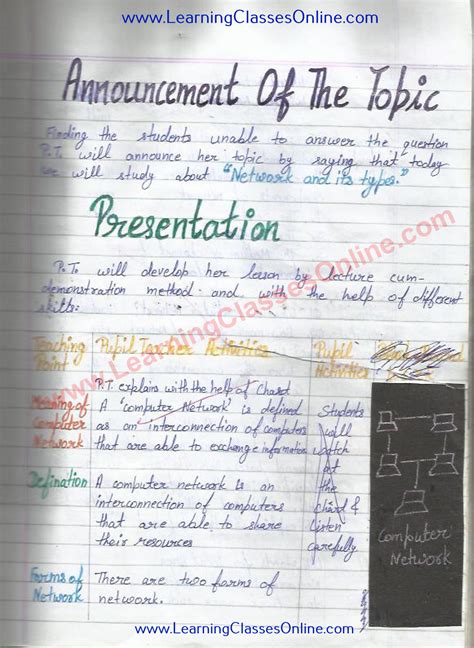 www.LearningClassesOnline.com
Announcement Of The Topic
Finding the students unable to answer the question
P.T. will announce her topic by saying that "today
we will study about "Network and its types."
Presentation
P.T. will develop her lesson by lecture cum-
demonstration method and with the help of different
skills:
www.LearningClassesOnline.com
Teaching Point
Pupil Teacher Activities
Pupil Activities
Meaning of Computer Network
P.T. explains with the help of Chart
A 'computer Network' is defined
as an interconnection of computers
that are able to exchange information
Students
will
watch
at
the
chart &
listen
carefully
Computer
Network
Defination
A computer network is an
interconnection of computers
that are able to share
their resources
Forms of
Network
There are two forms of
network.
www.LearningClassesOnline.com